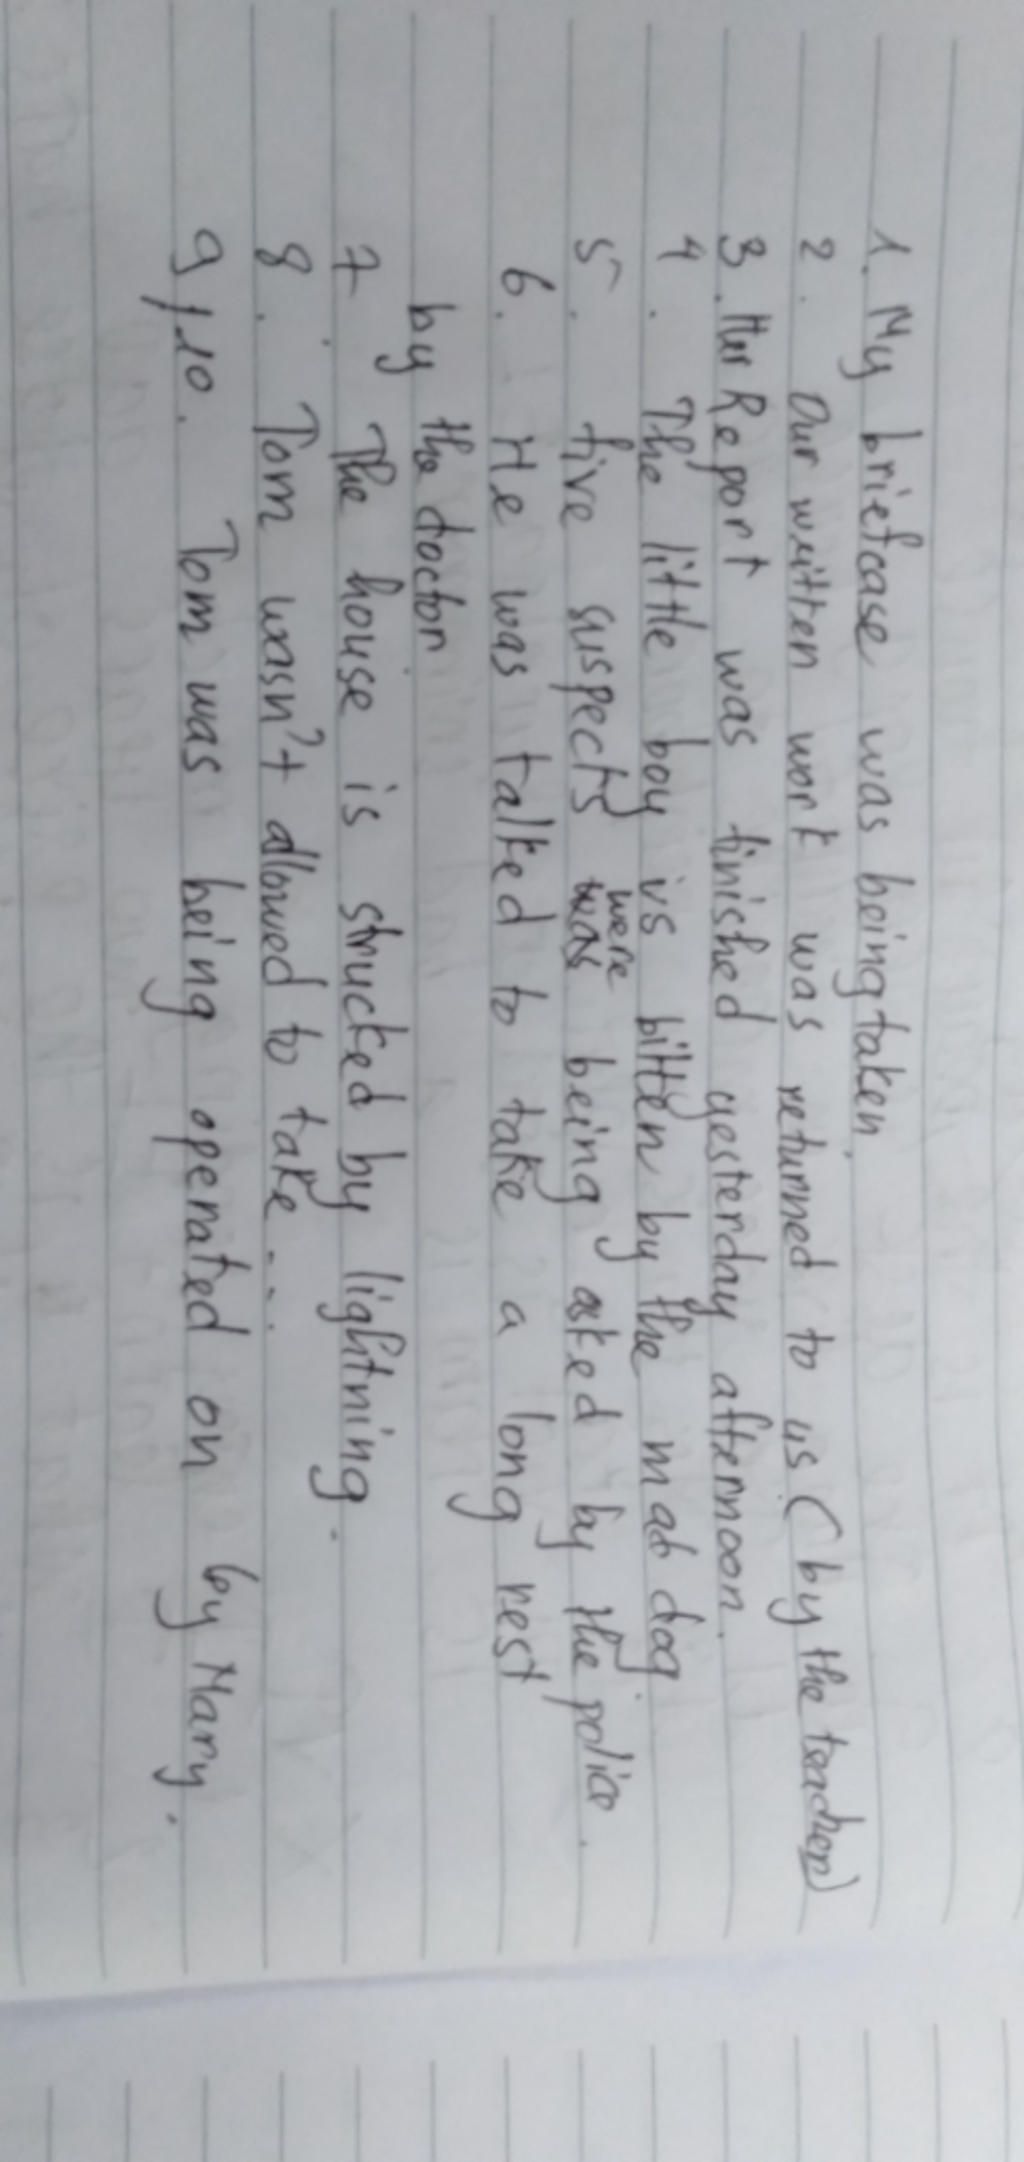 1. My briefcase was being taken
2. Our written work was returned to us (by the teacher)
3. Her Report was finished yesterday afternoon.
4. The little boy is bitten by the mad dog
5. five suspects were being asked by the police.
6. He was talked to take a long rest
by the doctor
7 The house is strucked by lightning.
8. Tom wasn't allowed to take....
9/10. Tom was being operated on by Mary.